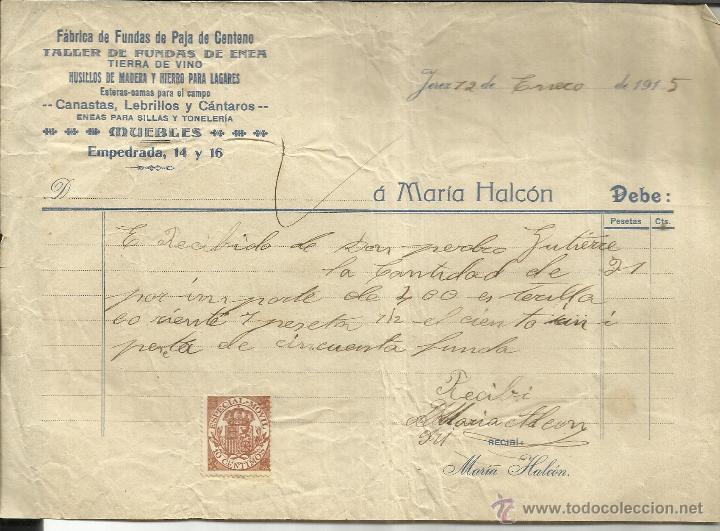 Fábrica de Fundas de Paja de Centeno
TALLER DE FUNDAS DE ENEA
TIERRA DE VINO
HUSILLOS DE MADERA Y HIERRO PARA LAGARES
Esteras-camas para el campo
--Canastas, Lebrillos y Cántaros--
ENEAS PARA SILLAS Y TONELERÍA
MUEBLES
Empedrada, 14 y 16
Jerez 12 de Enero de 1915
D. á María Halcón Debe:
Pesetas Cts.
E Recibido de Don pedro Gutiérre
la Cantidad de 21
por inn porte de 200 esterilla
7 peseta 1/2 el ciento
de cincuenta funda
Recibi
Maria Alcon
RECIBÍ:
María Halcón.
ESPECIAL MOVIL
10 CENTIMOS
www.todocoleccion.net